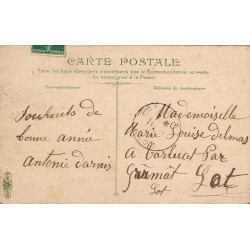 CARTE POSTALE
Tous les pays étrangers n'acceptent pas la Correspondance au recto
(Se renseigner à la Poste)
Correspondance
Adresse du destinataire
Souhaits de
bonne année
Antonie Darnis
Mademoiselle
Marie Louise Delmas
a Carlucet Par
Gramat Lot
Lot